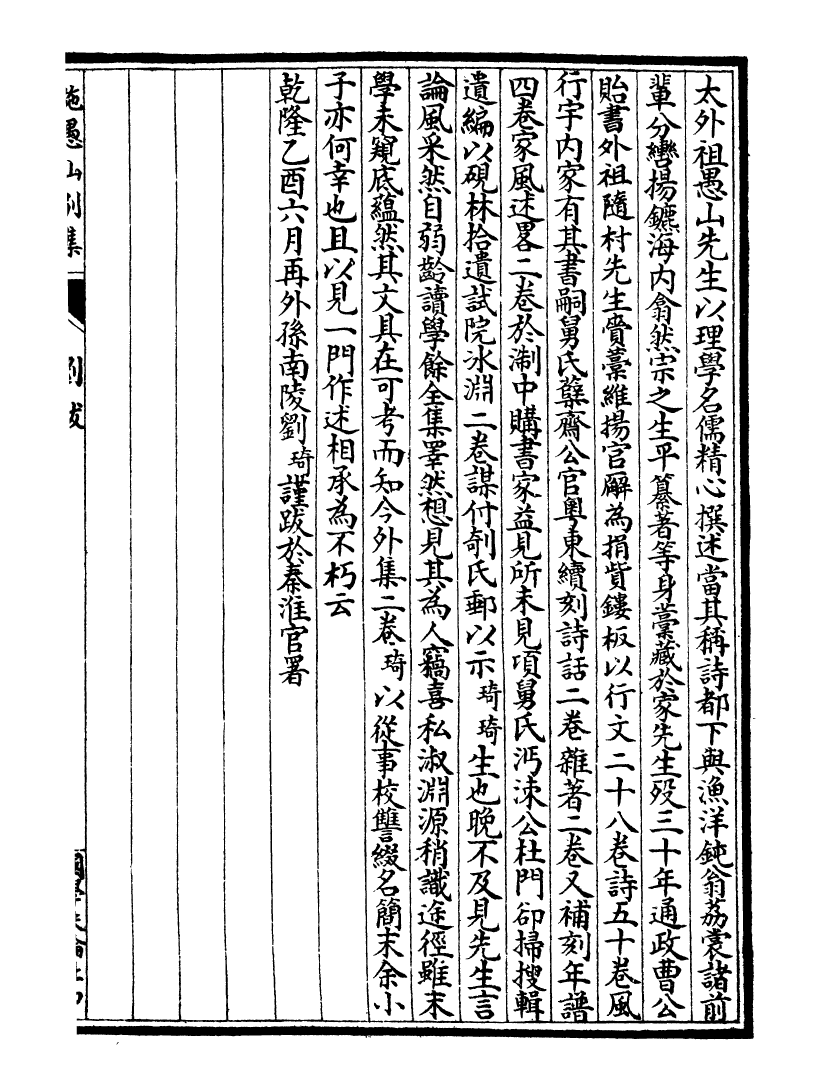 太外祖愚山先生以理學名儒精心撰述當其稱詩都下與漁洋鈍翁荔裳諸前
輩分轡揚鑣海內翕然宗之生平纂著等身藁藏於家先生歿三十年通政曹公
貽書外祖隨村先生賫藁維揚官廨為捐貲鏤板以行文二十八卷詩五十卷風
行宇內家有其書嗣舅氏蘖齋公官粵東續刻詩話二卷雜著二卷又補刻年譜
四卷家風述畧二卷於淛中購書家益見所未見項舅氏沔涑公杜門卻掃搜輯
遺編以硯林拾遺試院冰淵二卷謀付剞氏郵以示琦琦生也晚不及見先生言
論風采然自弱齡讀學餘全集睪然想見其為人竊喜私淑淵源稍識途徑雖末
學未窺底蘊然其文具在可考而知今外集二卷琦以從事校讐綴名簡末余小
子亦何幸也且以見一門作述相承為不朽云
乾隆乙酉六月再外孫南陵劉琦謹跋於秦淮官署
施愚山別集 劉跋